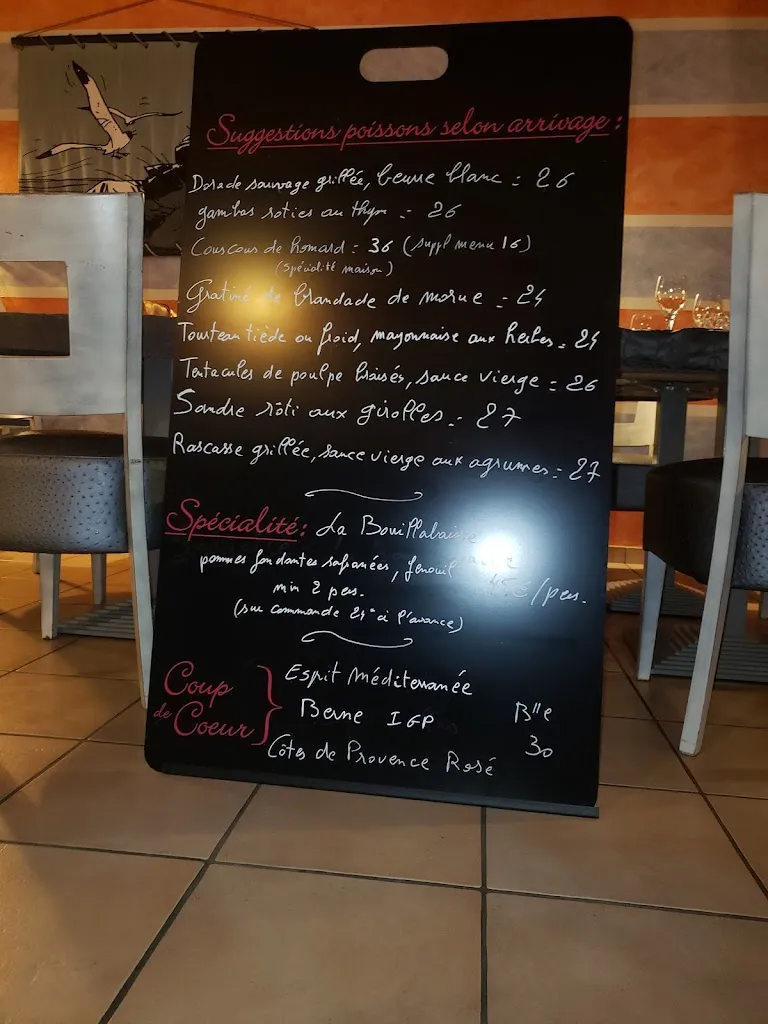 Suggestions poissons selon arrivage :
Dorade sauvage grillée, beurre blanc = 26
gambas roties au thym = 26
Couscous de homard = 36 (suppl menu 16)
(Spécialité maison)
Gratiné de brandade de morue = 24
Tourteau tiède ou froid, mayonnaise aux herbes = 24
Tentacules de poulpe braisés, sauce vierge = 26
Sandre rôti aux girolles = 27
Rascasse grillée, sauce vierge aux agrumes = 27
Spécialité: La Bouillabaisse
pommes fondantes safranées, fenouil
min 2 pers. /pers.
(sur commande 24h à l'avance)
Coup de Coeur
Esprit Méditerranée
Berne IGP Blle
Côtes de Provence Rosé 30